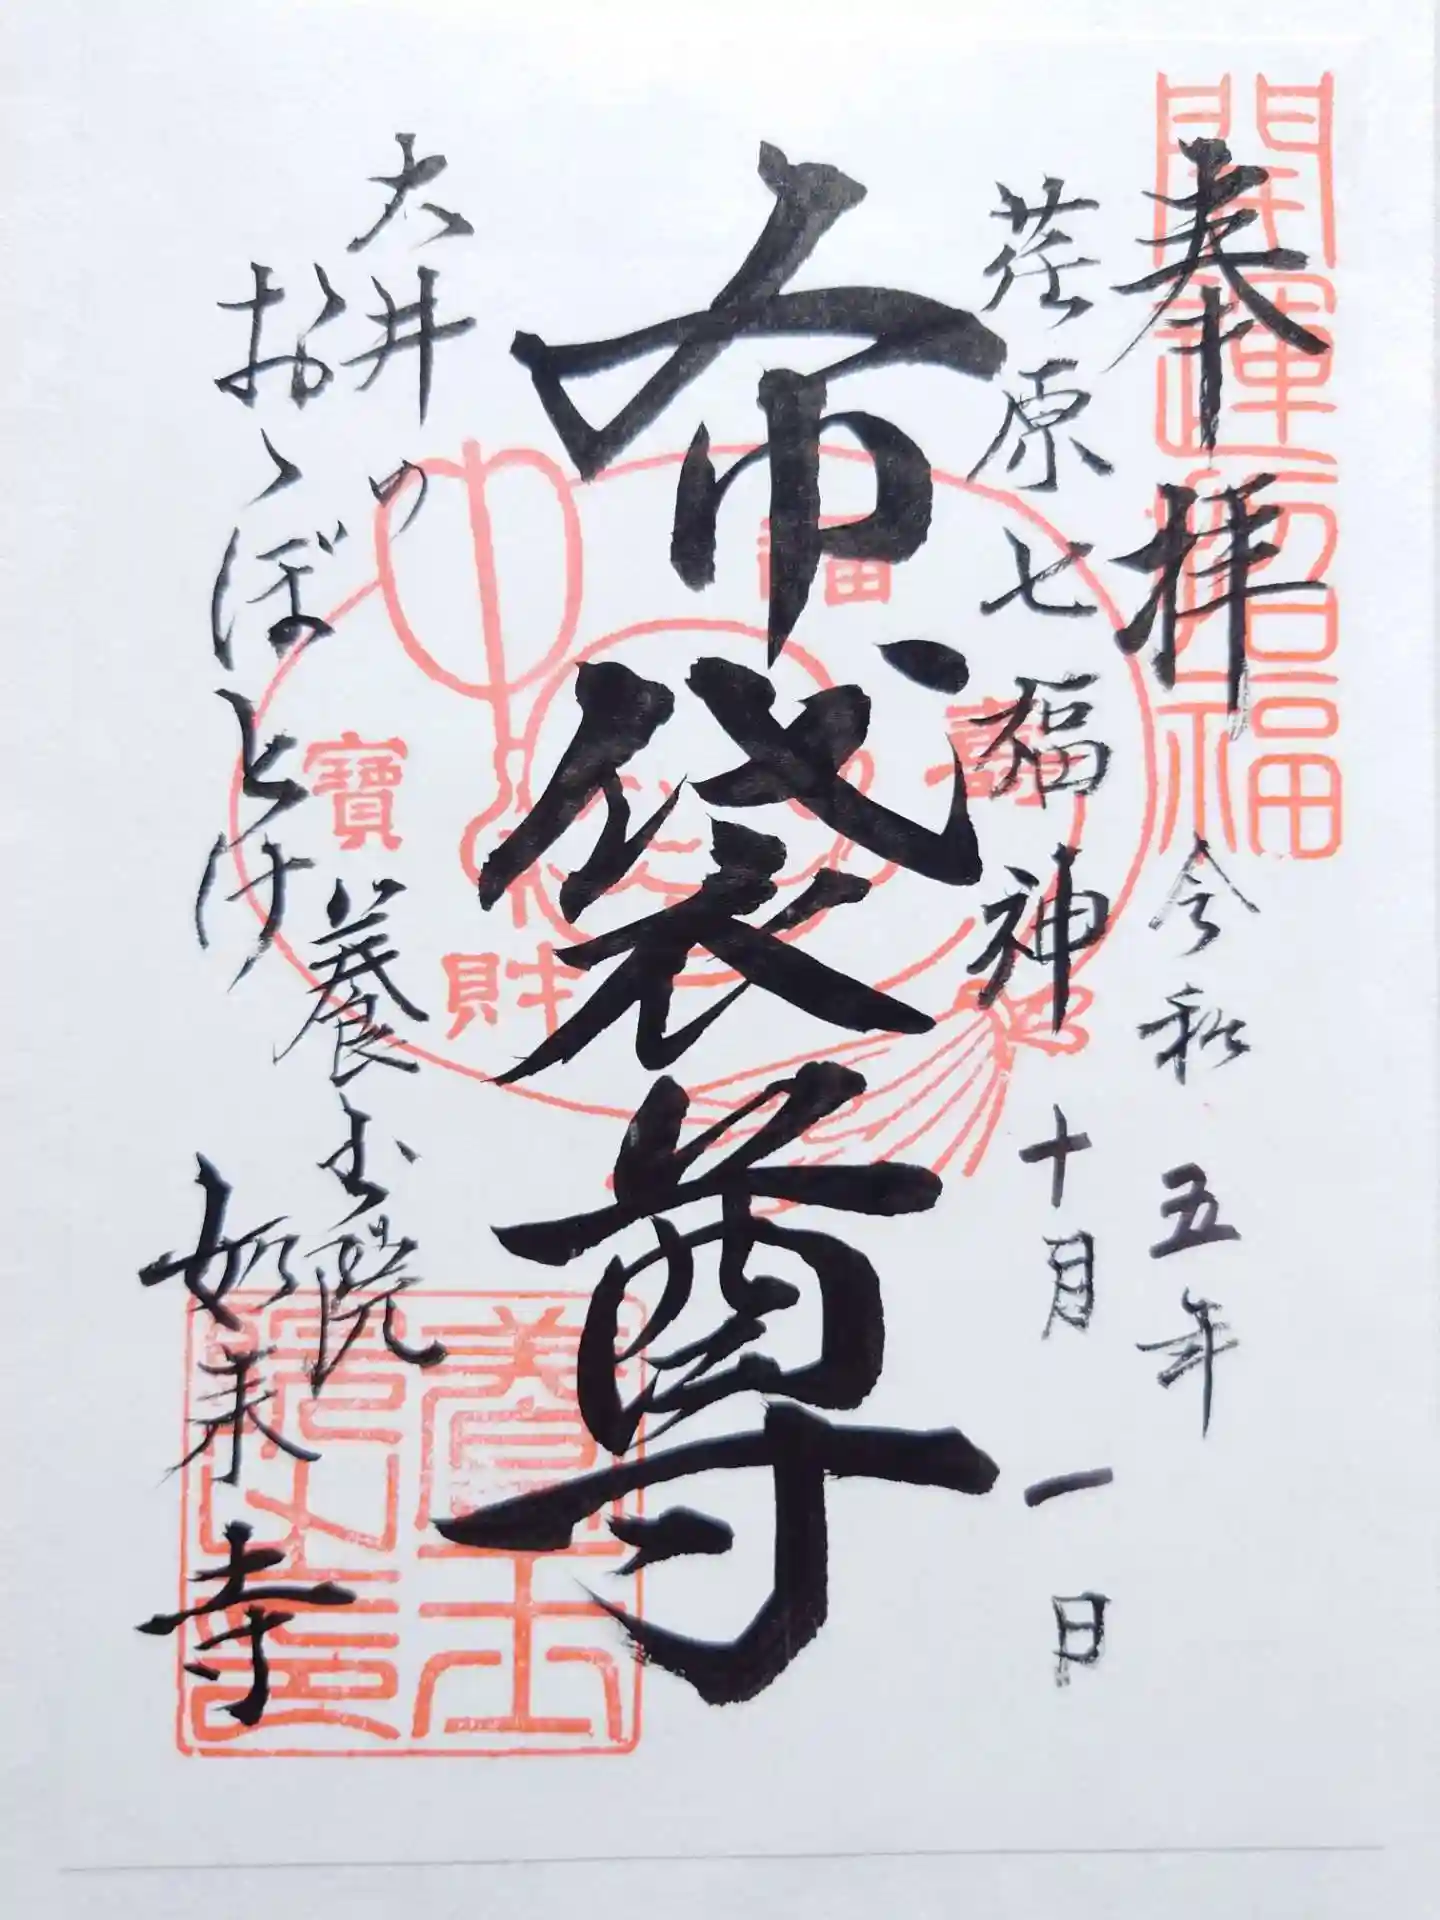 開運招福
奉拝
令和五年
荏原七福神
十月一日
布袋尊
福
壽
寶
財
大井の
おゝぼとけ
養玉院
如来寺
養玉院印